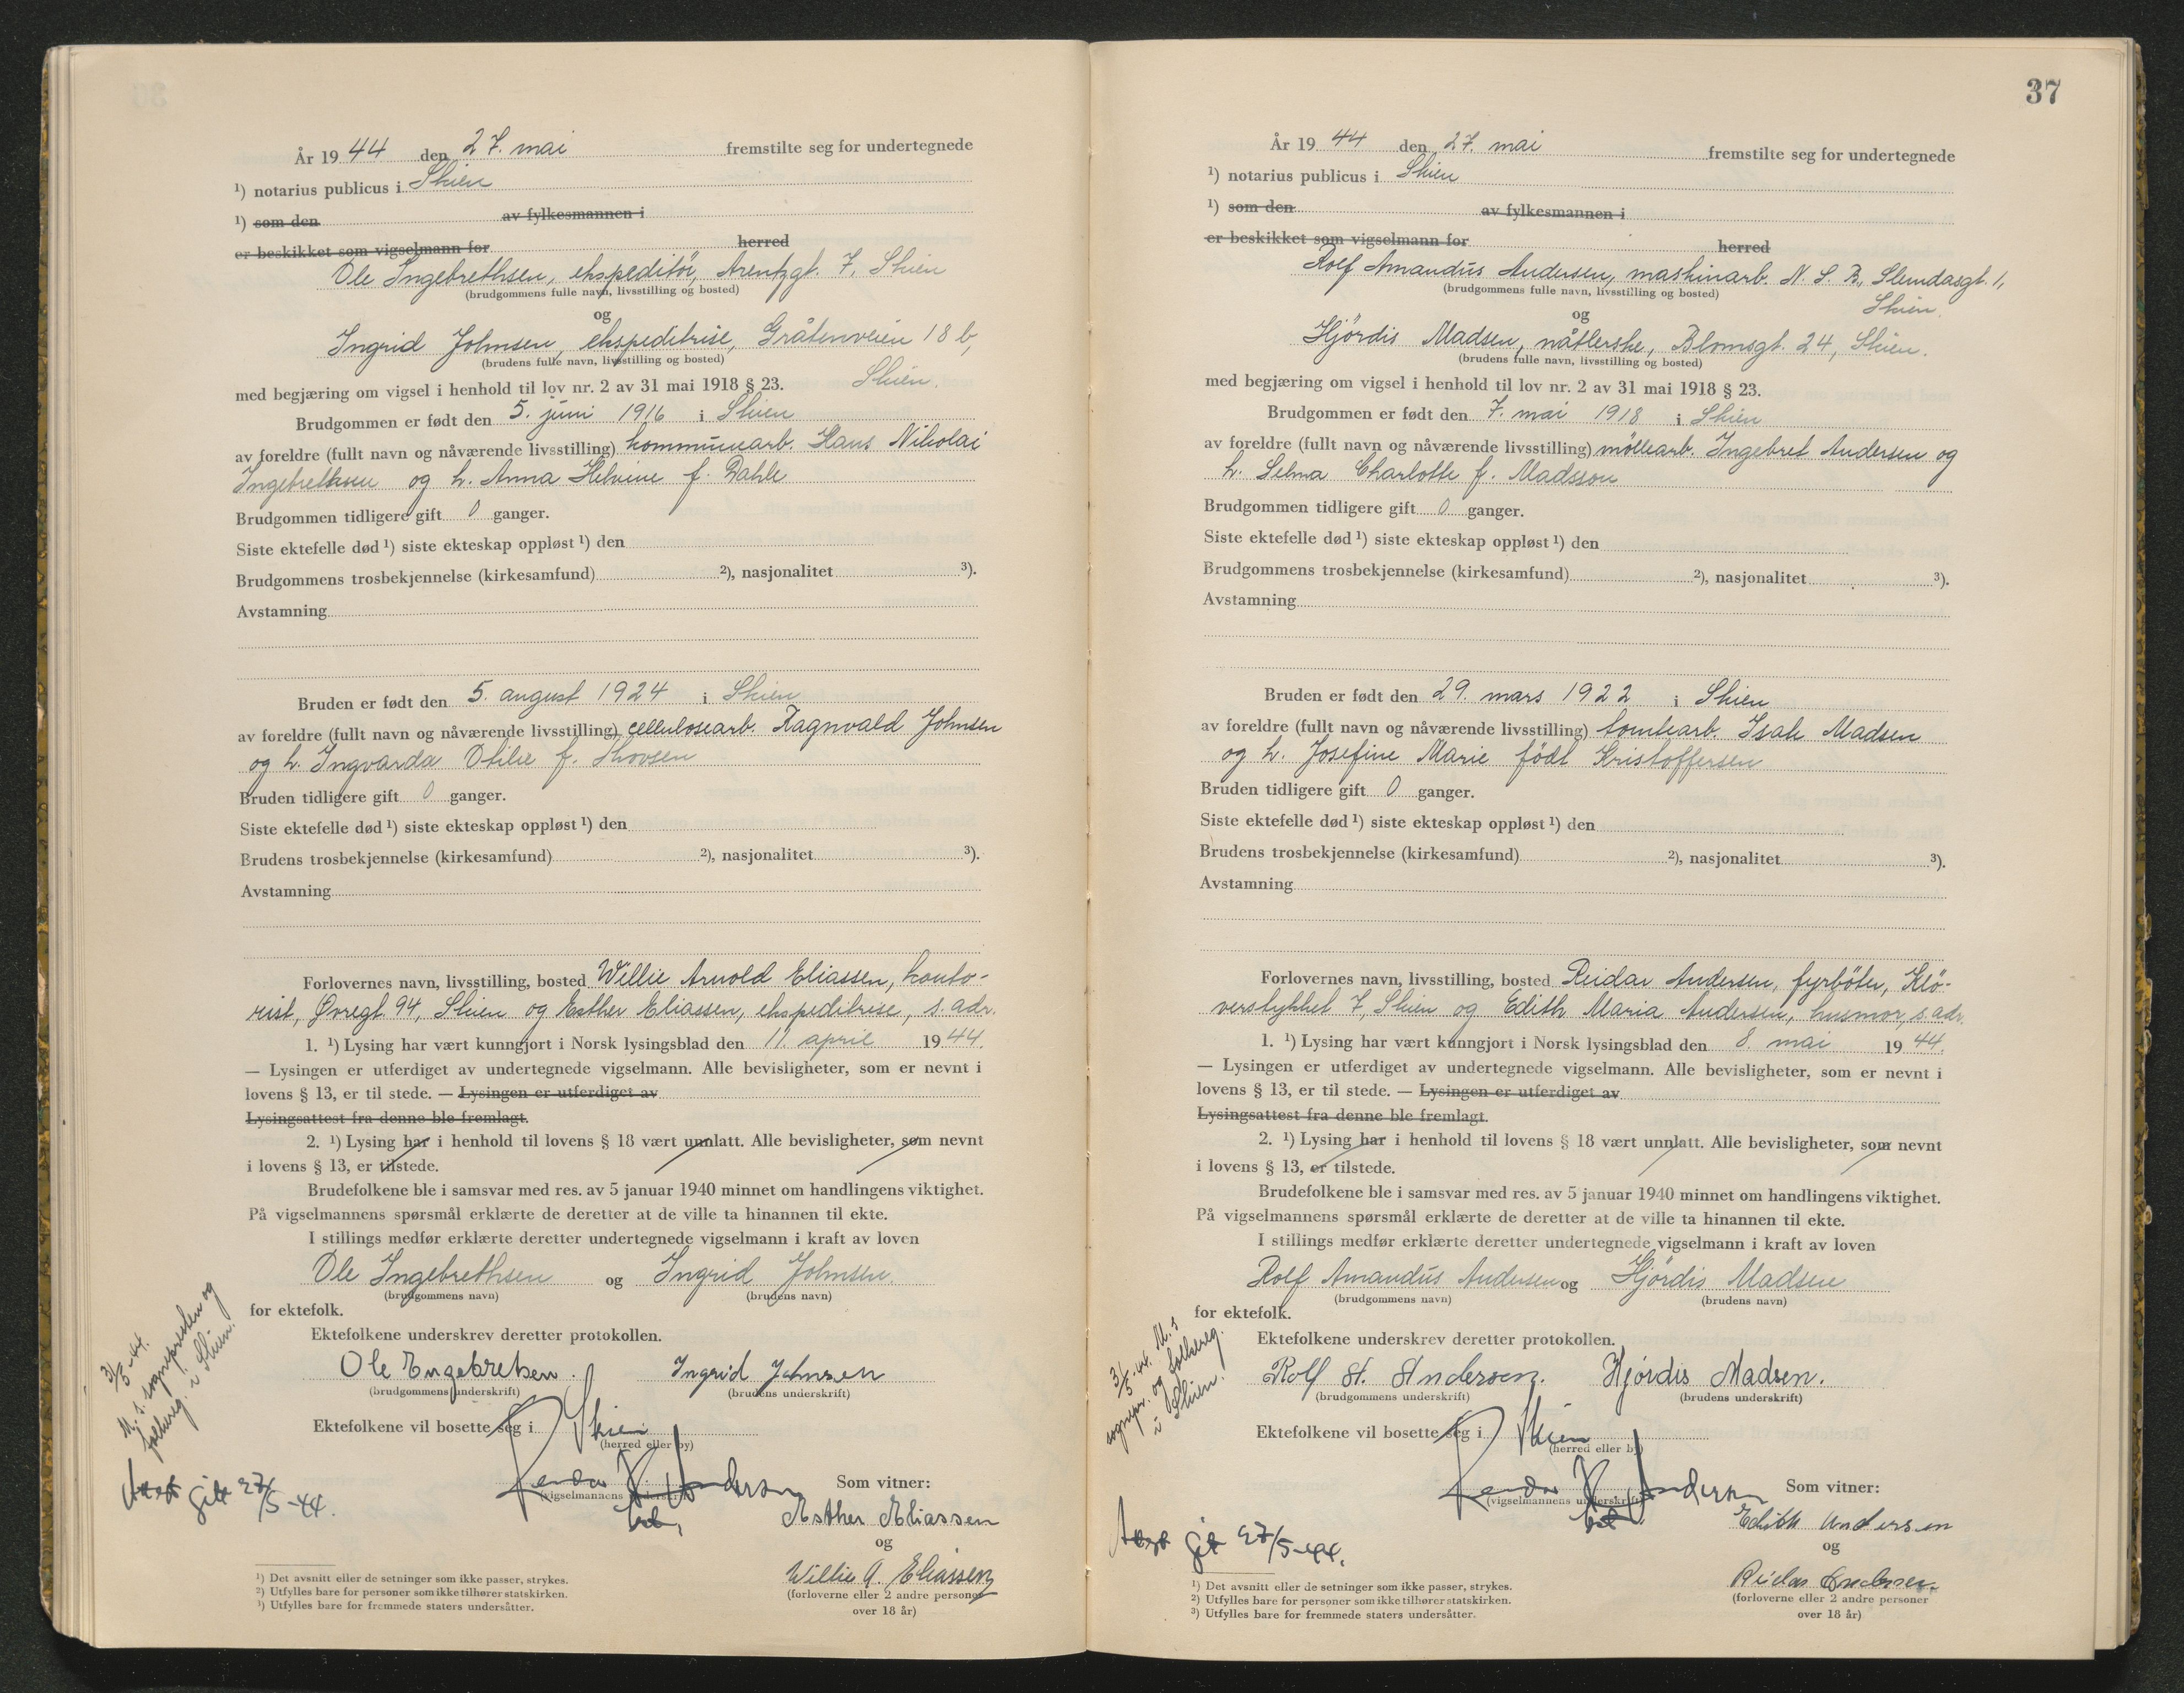 År 1944 den 27. mai fremstilte seg for undertegnede
¹) notarius publicus i Skien
¹) som den av fylkesmannen i
er beskikket som vigselmann for herred
Ole Ingebrethsen, ekspeditör, Arentzgt. 7, Skien
(brudgommens fulle navn, livsstilling og bosted)
og
Ingrid Johnsen, ekspeditrise, Gråtenveien 18 b,
(brudens fulle navn, livsstilling og bosted)
Skien.
med begjæring om vigsel i henhold til lov nr. 2 av 31 mai 1918 § 23.
Brudgommen er født den 5. juni 1916 i Skien
av foreldre (fullt navn og nåværende livsstilling) kommunearb. Hans Nikolai
Ingebrethsen og h. Anna Helvine f. Dahle
Brudgommen tidligere gift 0 ganger.
Siste ektefelle død ¹) siste ekteskap oppløst ¹) den
Brudgommens trosbekjennelse (kirkesamfund) ²), nasjonalitet ³).
Avstamning
Bruden er født den 5. august 1924 i Skien
av foreldre (fullt navn og nåværende livsstilling) cellulosearb. Ragnvald Johnsen
og h. Ingvarda Otilie f. Skovsen
Bruden tidligere gift 0 ganger.
Siste ektefelle død ¹) siste ekteskap oppløst ¹) den
Brudens trosbekjennelse (kirkesamfund) ²), nasjonalitet ³).
Avstamning
Forlovernes navn, livsstilling, bosted Willie Arnold Eliassen, konto-
rist, Øvregt. 94, Skien og Esther Eliassen, ekspeditrise, s. adr.
1. ¹) Lysing har vært kunngjort i Norsk lysingsblad den 11. april 1944.
— Lysingen er utferdiget av undertegnede vigselmann. Alle bevisligheter, som er nevnt i
lovens § 13, er til stede. — Lysingen er utferdiget av
Lysingsattest fra denne ble fremlagt.
2. ¹) Lysing har i henhold til lovens § 18 vært unnlatt. Alle bevisligheter, som nevnt
i lovens § 13, er tilstede.
Brudefolkene ble i samsvar med res. av 5 januar 1940 minnet om handlingens viktighet.
På vigselmannens spørsmål erklærte de deretter at de ville ta hinannen til ekte.
I stillings medfør erklærte deretter undertegnede vigselmann i kraft av loven
Ole Ingebrethsen og Ingrid Johnsen
(brudgommens navn) (brudens navn)
for ektefolk.
Ektefolkene underskrev deretter protokollen.
Ole Engebretsen. Ingrid Johnsen
(brudgommens underskrift) (brudens underskrift)
Ektefolkene vil bosette seg i Skien
(herred eller by)
(vigselmannens underskrift)
Som vitner:
Esther Eliassen
og
Willie A. Eliassen
(forloverne eller 2 andre personer
over 18 år)
31/5-44.
M. s. sognepresten og
folkereg. i Skien.
Attest gitt 27/5-44.
¹) Det avsnitt eller de setninger som ikke passer, strykes.
²) Utfylles bare for personer som ikke tilhører statskirken.
³) Utfylles bare for fremmede staters undersåtter.
37
År 1944 den 27. mai fremstilte seg for undertegnede
¹) notarius publicus i Skien
¹) som den av fylkesmannen i
er beskikket som vigselmann for herred
Rolf Amandus Andersen, maskinarb. N. S. B., Slemdasgt. 1,
(brudgommens fulle navn, livsstilling og bosted)
Skien.
og
Hjördis Madsen, nåtlerske, Blomsgt. 24, Skien.
(brudens fulle navn, livsstilling og bosted)
med begjæring om vigsel i henhold til lov nr. 2 av 31 mai 1918 § 23.
Brudgommen er født den 7. mai 1918 i Skien
av foreldre (fullt navn og nåværende livsstilling) möllearb. Ingebret Andersen og
h. Selma Charlotte f. Madsson
Brudgommen tidligere gift 0 ganger.
Siste ektefelle død ¹) siste ekteskap oppløst ¹) den
Brudgommens trosbekjennelse (kirkesamfund) ²), nasjonalitet ³).
Avstamning
Bruden er født den 29. mars 1922 i Skien
av foreldre (fullt navn og nåværende livsstilling) tomtearb. Isak Madsen
og h. Josefine Marie födt Kristoffersen
Bruden tidligere gift 0 ganger.
Siste ektefelle død ¹) siste ekteskap oppløst ¹) den
Brudens trosbekjennelse (kirkesamfund) ²), nasjonalitet ³).
Avstamning
Forlovernes navn, livsstilling, bosted Reidar Andersen, fyrböter, Klö-
verstykket 7, Skien og Edith Maria Andersen, husmor, s. adr.
1. ¹) Lysing har vært kunngjort i Norsk lysingsblad den 8. mai 1944.
— Lysingen er utferdiget av undertegnede vigselmann. Alle bevisligheter, som er nevnt i
lovens § 13, er til stede. — Lysingen er utferdiget av
Lysingsattest fra denne ble fremlagt.
2. ¹) Lysing har i henhold til lovens § 18 vært unnlatt. Alle bevisligheter, som nevnt
i lovens § 13, er tilstede.
Brudefolkene ble i samsvar med res. av 5 januar 1940 minnet om handlingens viktighet.
På vigselmannens spørsmål erklærte de deretter at de ville ta hinannen til ekte.
I stillings medfør erklærte deretter undertegnede vigselmann i kraft av loven
Rolf Amandus Andersen og Hjördis Madsen
(brudgommens navn) (brudens navn)
for ektefolk.
Ektefolkene underskrev deretter protokollen.
Rolf A. Andersen. Hjördis Madsen.
(brudgommens underskrift) (brudens underskrift)
Ektefolkene vil bosette seg i Skien
(herred eller by)
(vigselmannens underskrift)
Som vitner:
Edith Andersen
og
Reidar Andersen
(forloverne eller 2 andre personer
over 18 år)
31/5-44. M. s.
sognepr. og folkereg.
i Skien.
Attest gitt 27/5-44.
¹) Det avsnitt eller de setninger som ikke passer, strykes.
²) Utfylles bare for personer som ikke tilhører statskirken.
³) Utfylles bare for fremmede staters undersåtter.